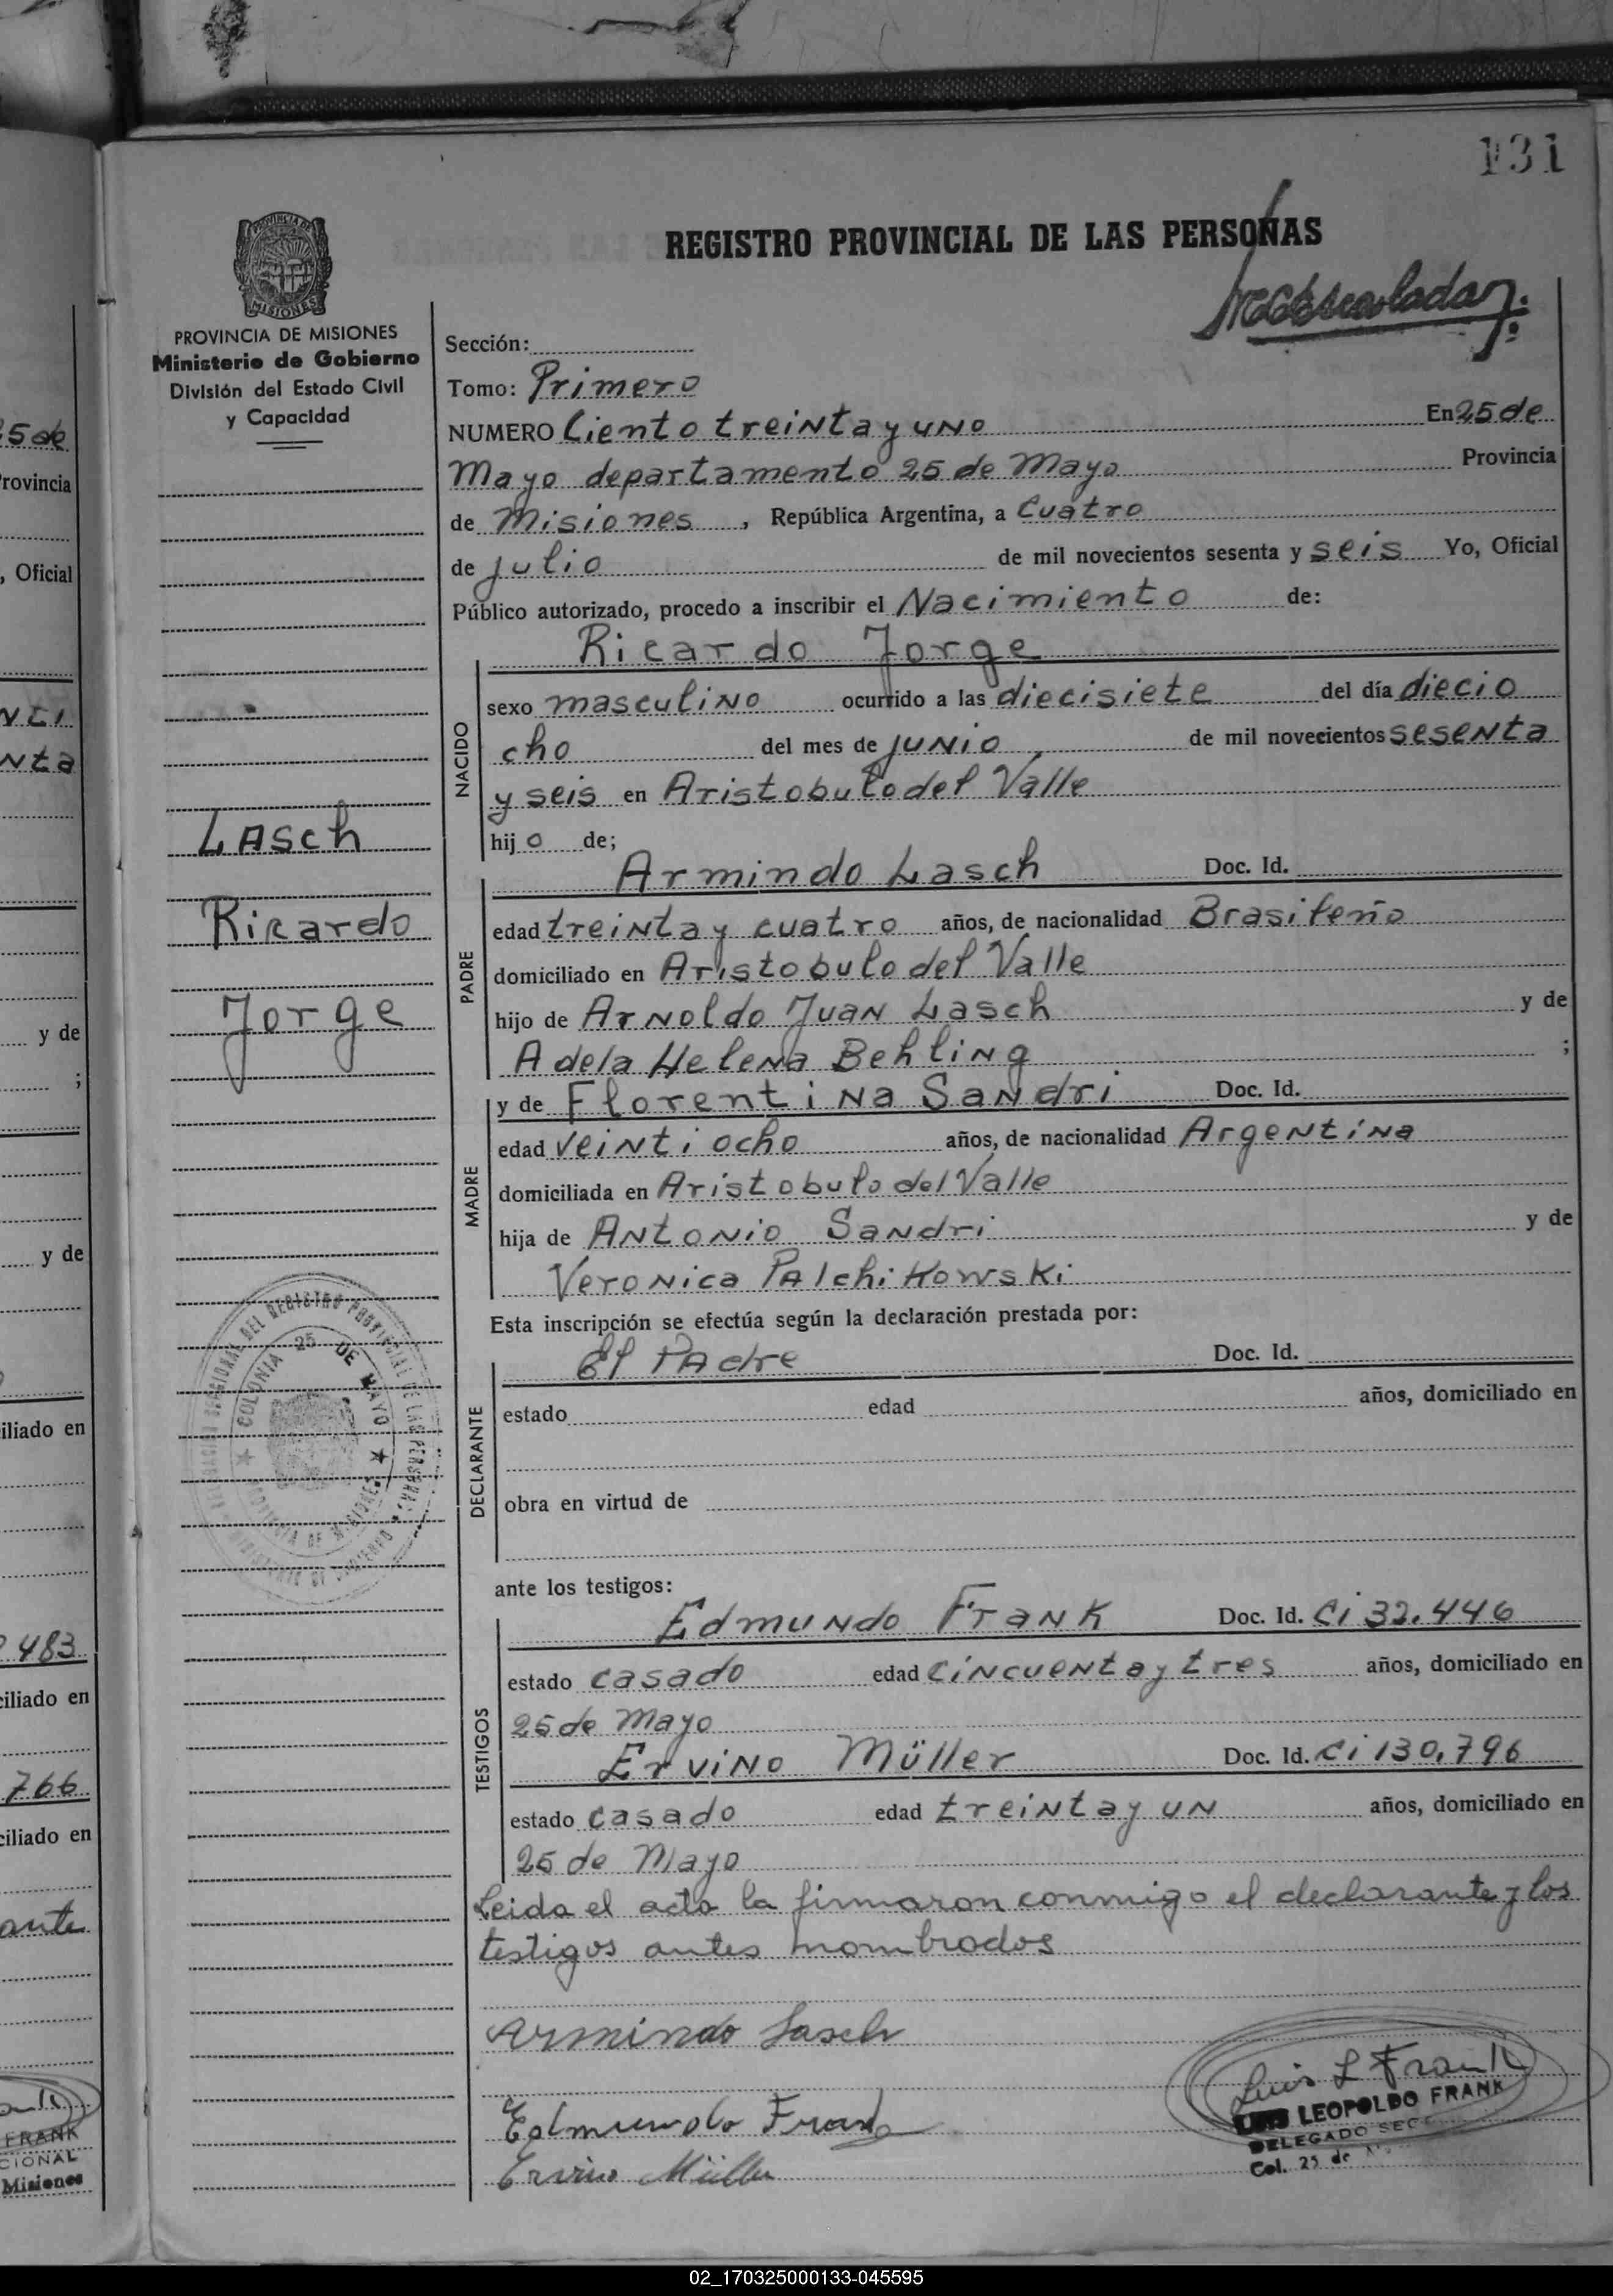 131
REGISTRO PROVINCIAL DE LAS PERSONAS
PROVINCIA DE
MISIONES
PROVINCIA DE MISIONES
Ministerio de Gobierno
División del Estado Civil
y Capacidad
Sección:
Tomo: Primero
NUMERO Ciento treinta y uno En 25 de
Mayo departamento 25 de Mayo Provincia
de Misiones , República Argentina, a Cuatro
de julio de mil novecientos sesenta y seis Yo, Oficial
Público autorizado, procedo a inscribir el Nacimiento de:
Ricardo Jorge
NACIDO
sexo masculino ocurrido a las diecisiete del día diecio
cho del mes de junio de mil novecientos sesenta
y seis en Aristobulo del Valle
hijo de;
Lasch
Ricardo
Jorge
PADRE
Armindo Lasch Doc. Id.
edad treinta y cuatro años, de nacionalidad Brasileño
domiciliado en Aristobulo del Valle
hijo de Arnoldo Juan Lasch y de
Adela Helena Behling ;
MADRE
y de Florentina Sandri Doc. Id.
edad veintiocho años, de nacionalidad Argentina
domiciliada en Aristobulo del Valle
hija de Antonio Sandri y de
Veronica Palchikowski
Esta inscripción se efectúa según la declaración prestada por:
DECLARANTE
El Padre Doc. Id.
estado edad años, domiciliado en
obra en virtud de
COLONIA 25 DE MAYO
PROVINCIA DE MISIONES
ante los testigos:
TESTIGOS
Edmundo Frank Doc. Id. Ci 32.446
estado casado edad cincuenta y tres años, domiciliado en
25 de Mayo
Ervino Müller Doc. Id. Ci 130.796
estado casado edad treinta y un años, domiciliado en
25 de Mayo
Leida el acta la firmaron conmigo el declarante y los
testigos antes nombrados
Armindo Lasch
Edmundo Frank
Ervino Müller
Luis L Frank
LUIS LEOPOLDO FRANK
DELEGADO SECC
Col. 25 de
5 de
Provincia
, Oficial
y de
;
y de
iliado en
483
ciliado en
766
ciliado en
ante
FRANK
CIONAL
Misiones
02_170325000133-045595